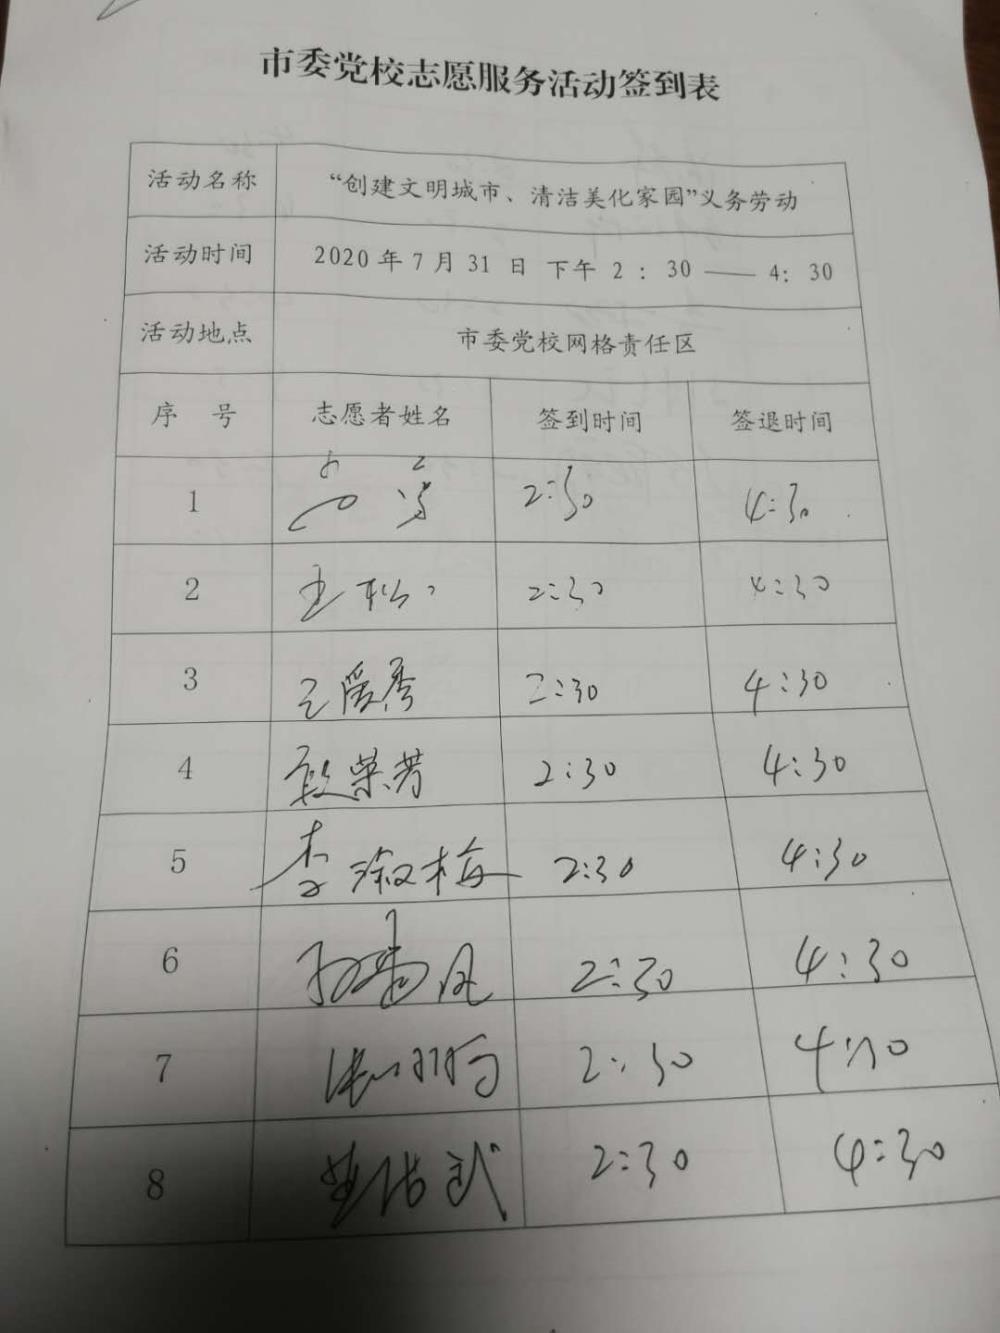 市委党校志愿服务活动签到表
活动名称 “创建文明城市、清洁美化家园”义务劳动
活动时间 2020年7月31日 下午 2：30 —— 4：30
活动地点 市委党校网格责任区
序 号 志愿者姓名 签到时间 签退时间
1 2:30 4:30
2 王松 2:30 4:30
3 王爱秀 2:30 4:30
4 段荣芳 2:30 4:30
5 李淑梅 2:30 4:30
6 2:30 4:30
7 2:30 4:30
8 2:30 4:30